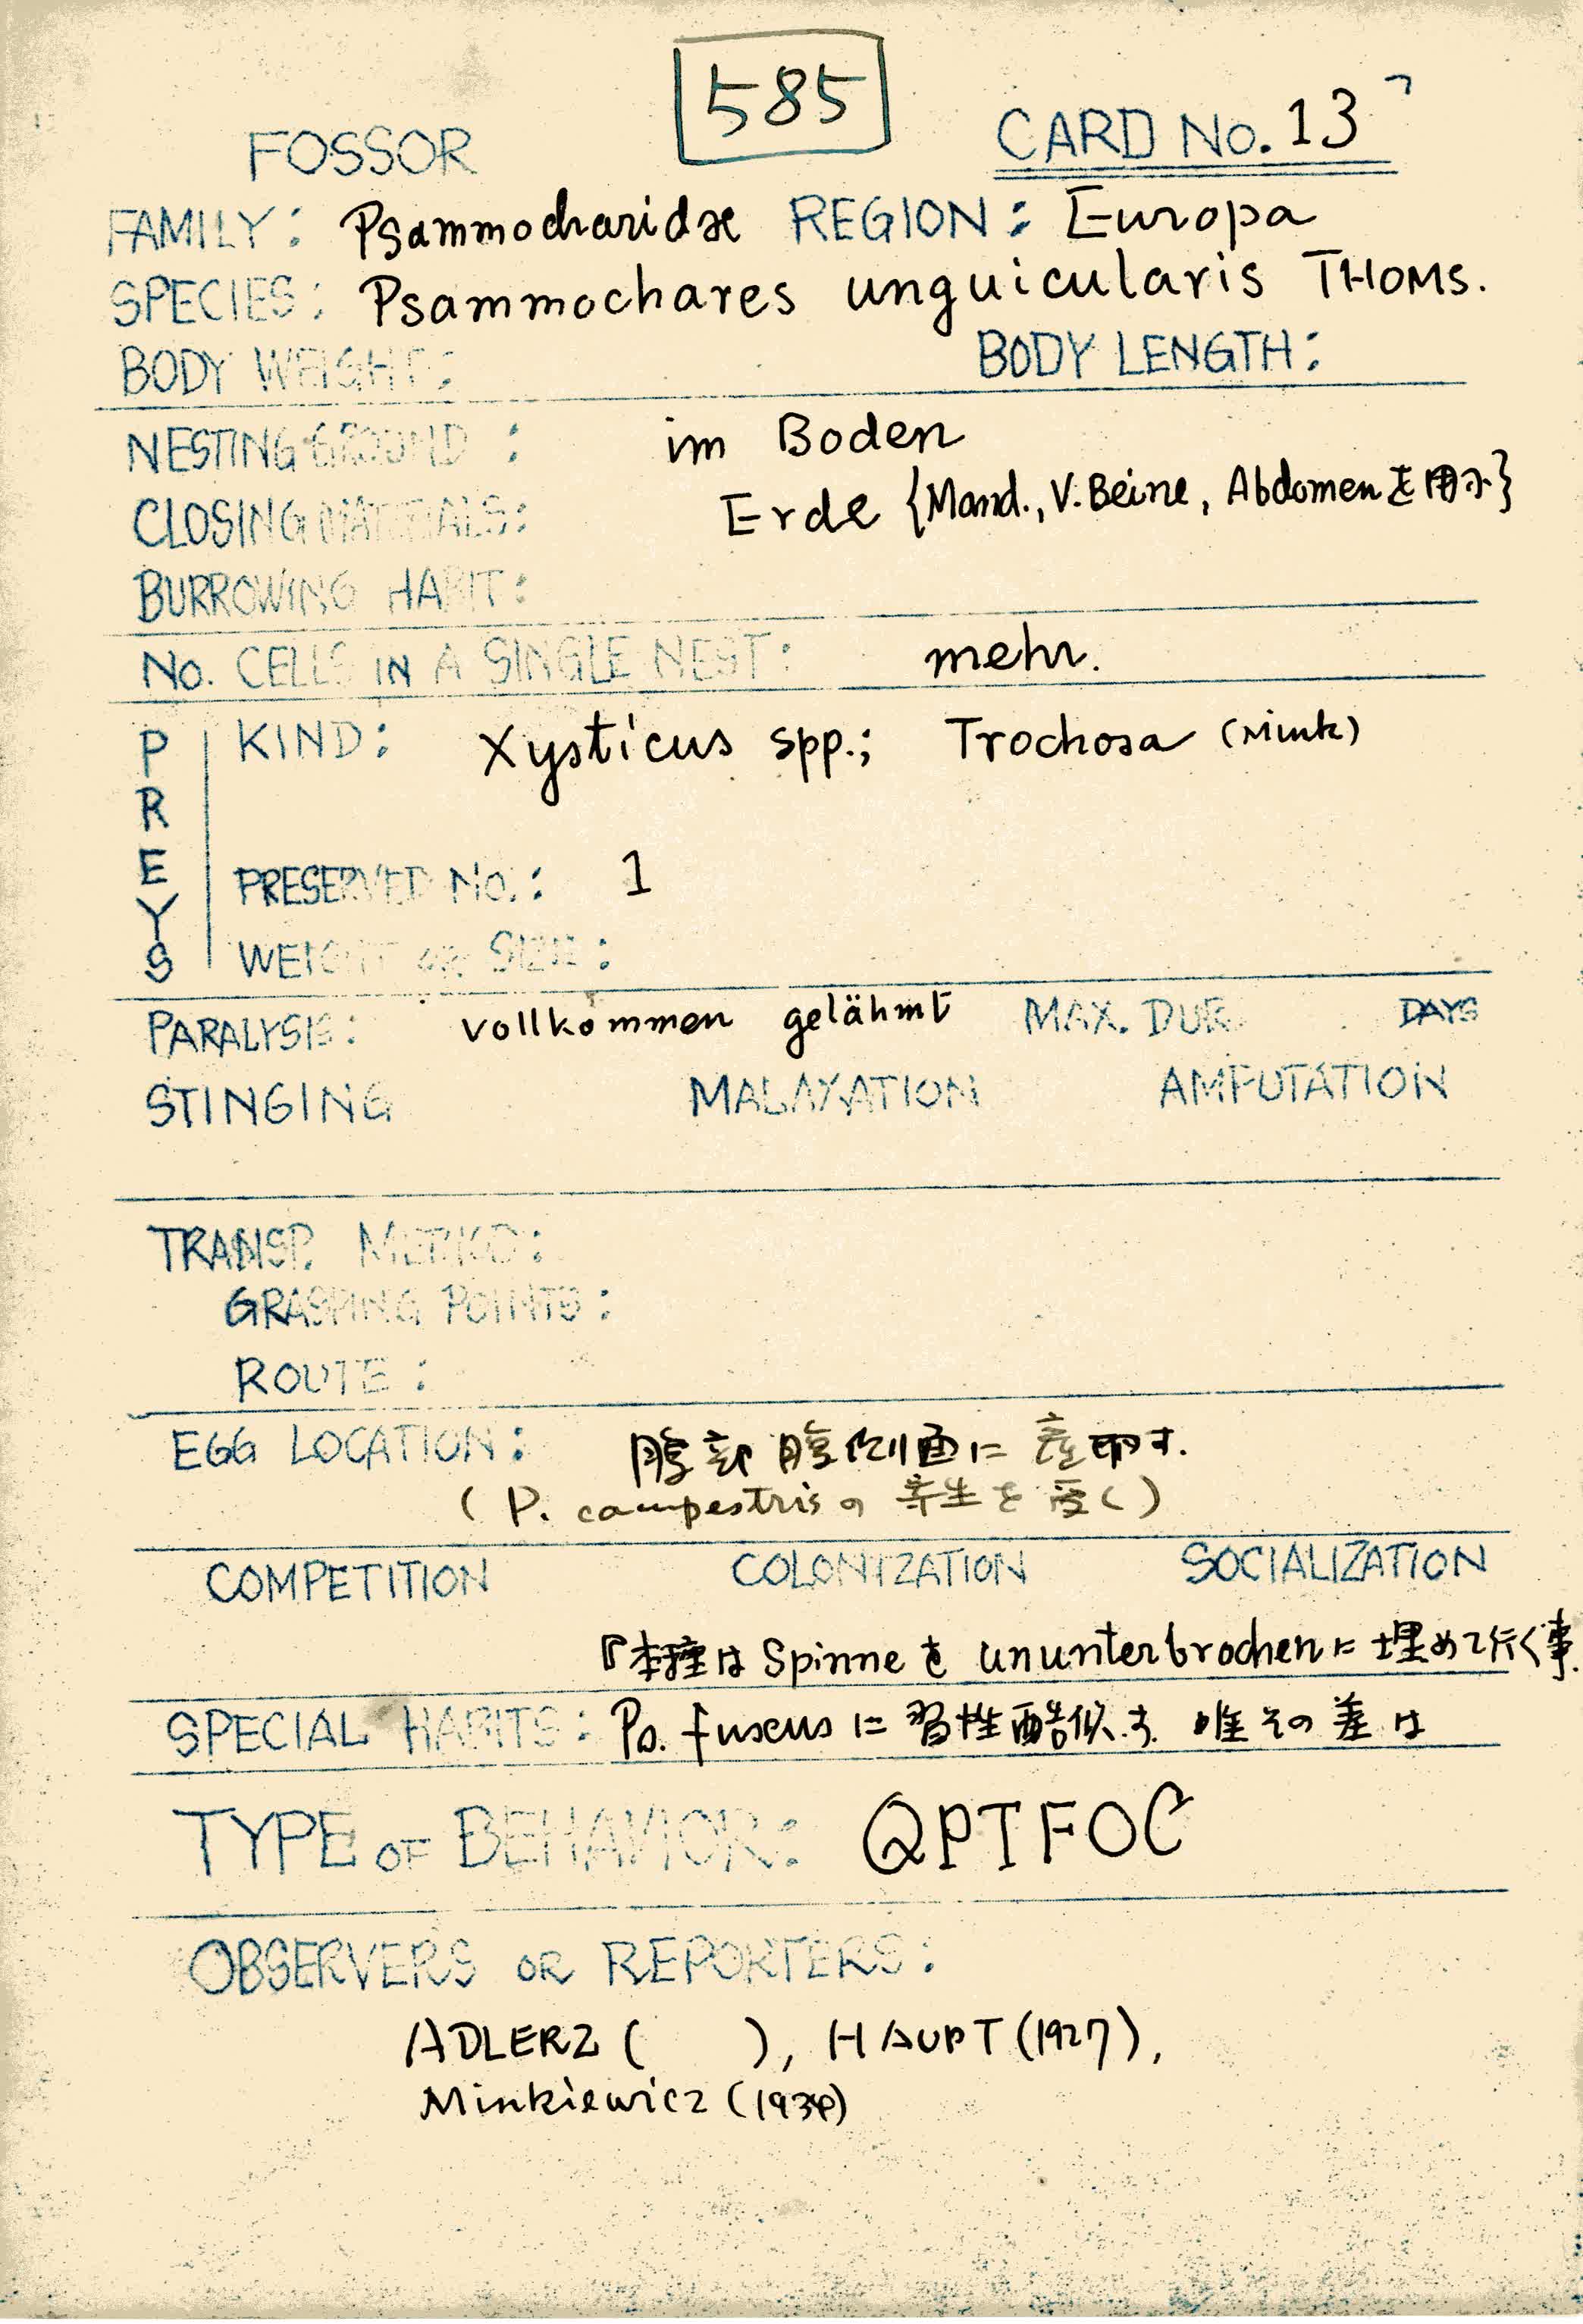 585
FOSSOR CARD No. 13
FAMILY: Psammocharidæ REGION: Europa
SPECIES: Psammochares unguicularis THOMS.
BODY WEIGHT: BODY LENGTH:
NESTING GROUND: im Boden
CLOSING MATERIALS: Erde {Mand., V. Beine, Abdomenを用フ}
BURROWING HABIT:
No. CELLS IN A SINGLE NEST: mehr.
PREYS
KIND: Xysticus spp.; Trochosa (Mink)
PRESERVED No.: 1
WEIGHT OR SIZE:
PARALYSIS: vollkommen gelähmt MAX. DUR. DAYS
STINGING MALAXATION AMPUTATION
TRANSP. METHOD:
GRASPING POINTS:
ROUTE:
EGG LOCATION: 腹部腹側面に産卵す.
(P. campestrisの寄生を受く)
COMPETITION COLONIZATION SOCIALIZATION
『本種はSpinneをununterbrochenに埋めて行く事.
SPECIAL HABITS: Ps. fuscusに習性酷似す. 唯その差は
TYPE OF BEHAVIOR: QPTFOC
OBSERVERS OR REPORTERS:
ADLERZ ( ), HAUPT (1927),
Minkiewicz (1934)